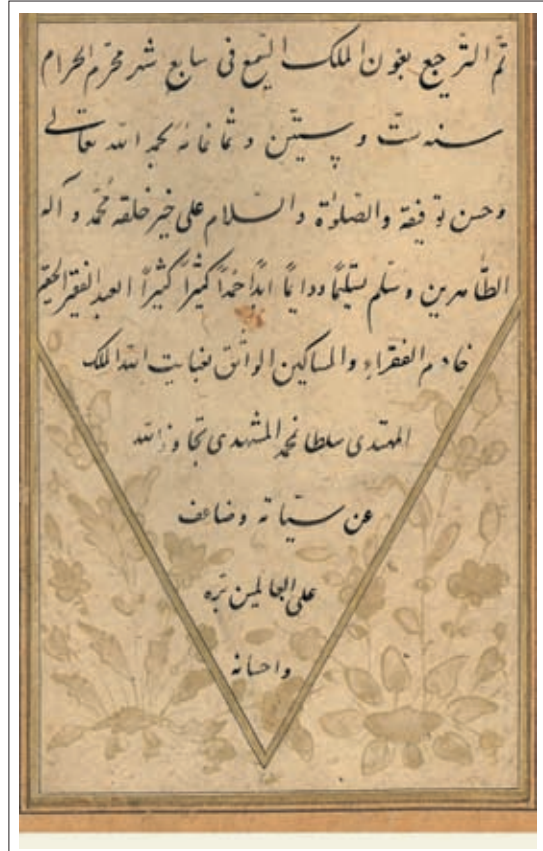 تمّ الترجیع بعون الملک السّمیع فی سابع شهر محرّم الحرام
سنه ستّ و ستّین و ثمانمائه بحمد الله تعالی
و حسن توفیقه والصّلوٰة والسّلام علی خیر خلقه محمّد و آله
الطّاهرین و سلّم تسلیمًا دایمًا ابدًا کثیرًا کثیرًا العبد الفقیر الحقیر
خادم الفقراء والمساکین الواثق بعنایت الله الملک
المهتدی سلطانمحمد المشهدی تجاوز الله
عن سیّاته وضاعف
علی العالمین برّه
واحسانه